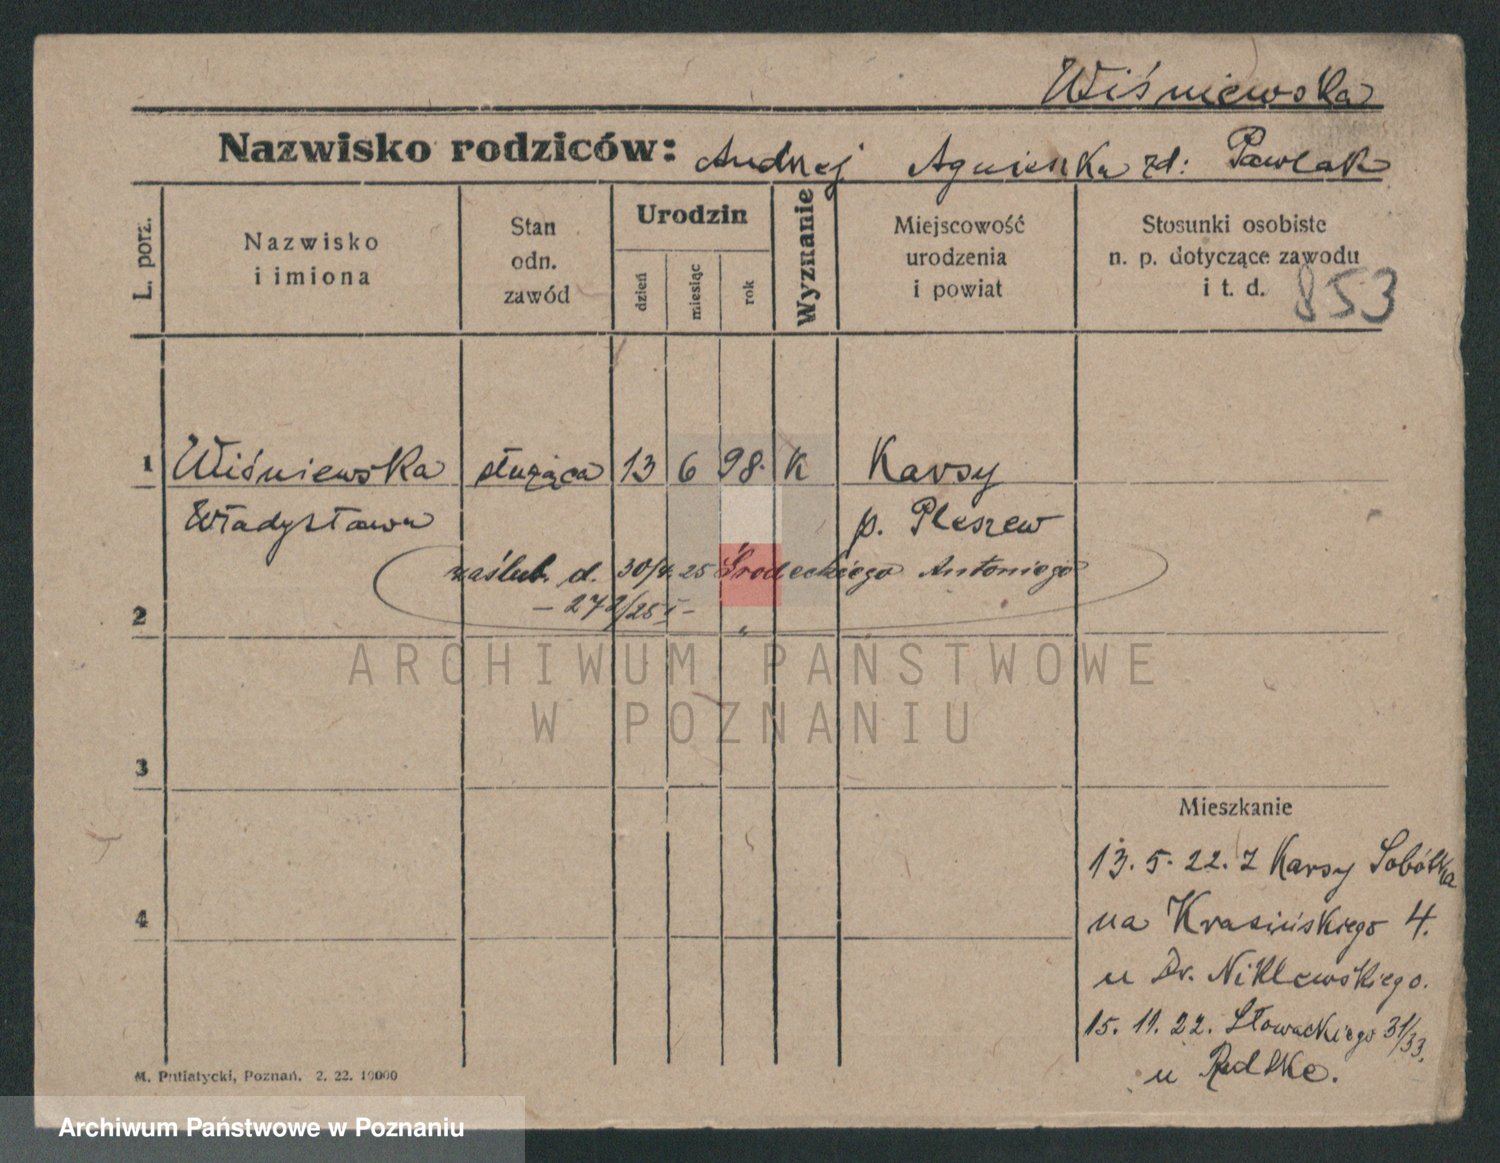 Wiśniewska
Nazwisko rodziców: Andrzej Agnieszka zd: Pawlak
L. porz.
Nazwisko
i imiona
Stan
odn.
zawód
Urodzin
dzień
miesiąc
rok
Wyznanie
Miejscowość
urodzenia
i powiat
Stosunki osobiste
n. p. dotyczące zawodu
i t. d.
853
1 Wiśniewska służąca 13 6 98. K Karsy
Władysława p. Pleszew
zaślub. d. 25 Środeckiego Antoniego
- 272/25 I -
2
3
4
ARCHIWUM PAŃSTWOWE
W POZNANIU
Mieszkanie
13. 5. 22. z Karsy Sobótka
na Krasińskiego 4.
u Dr. Niklewskiego.
15. 11. 22. Słowackiego 31/33.
u Radtke.
M. Putiatycki, Poznań. 2. 22. 10000
Archiwum Państwowe w Poznaniu